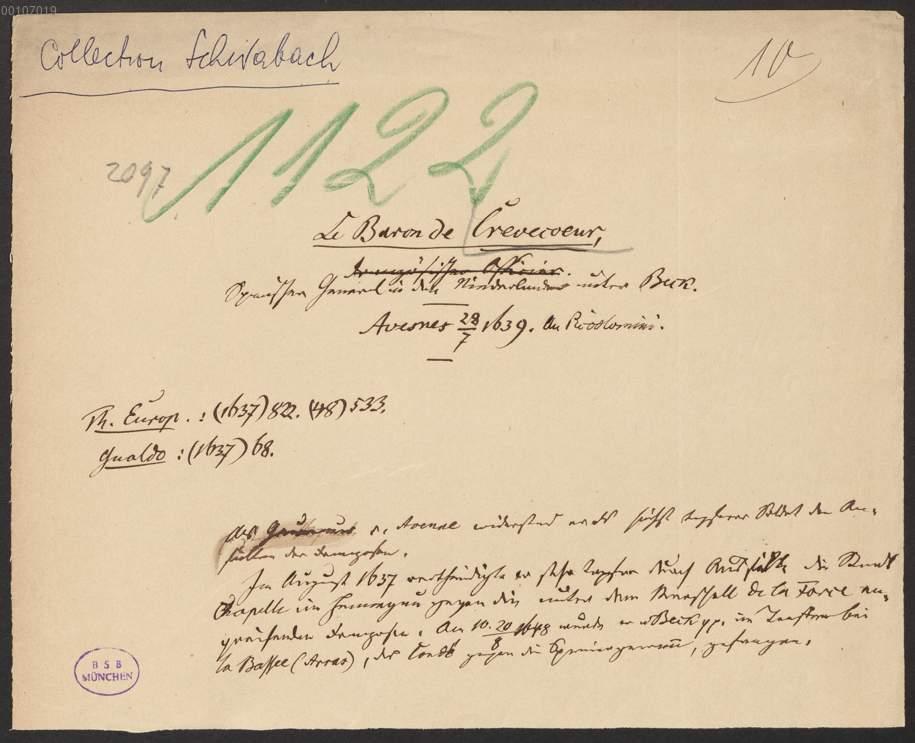 00107019
Collection Schwabach
10
1122
2097
Le Baron de Crevecoeur,
französischer Officier.
Spanischer General in den Niederlanden unter Beck.
Avesnes 28/7 1639. An Piccolomini.
Th. Europ. : (1637) 822. (48) 533.
Gualdo : (1637) 68.
Als Gouverneur v. widerstand er als tapferer Soldat den An-
fällen der Franzosen.
Im August 1637 vertheidigte er sehr tapfer durch Ausfälle die Stadt
Chapelle im Hennegau gegen die unter dem Marschall de la Force an-
greifenden Franzosen. Am 10. 20/8 1648 wurde er in Treffen bei
la Bassee (Arras), des Condé gegen die Spanier, gefangen.
BSB
MÜNCHEN